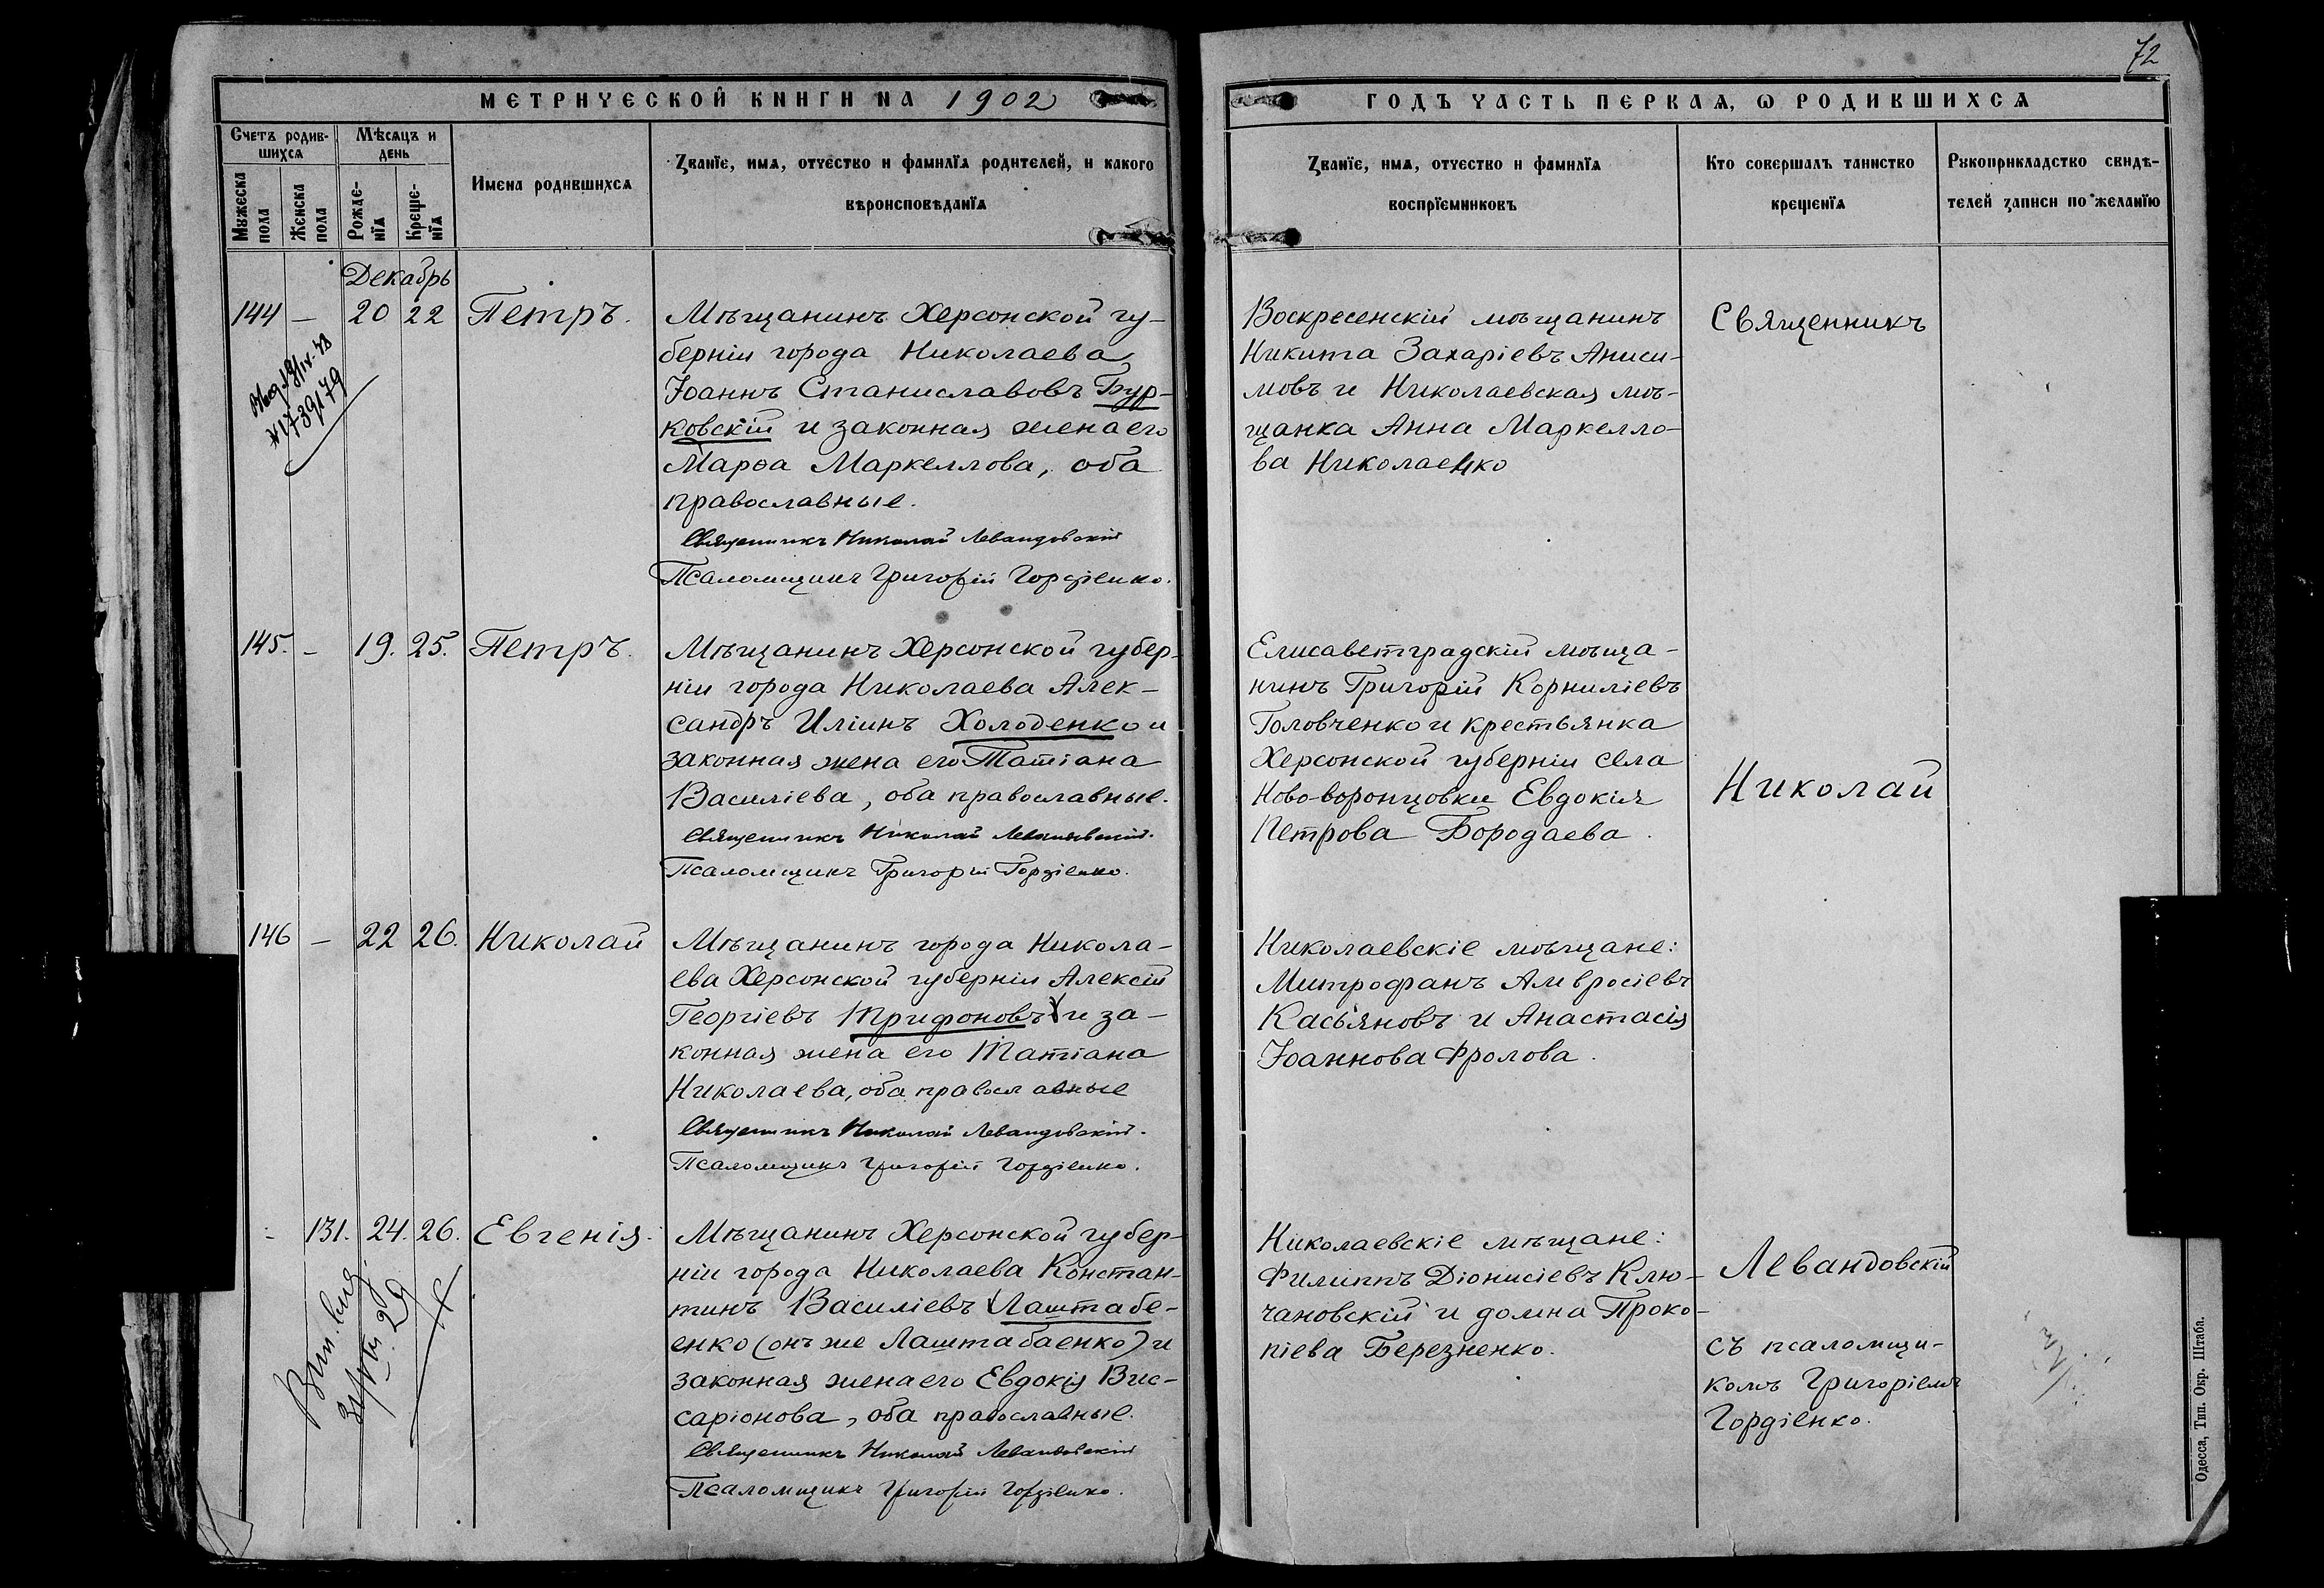 72
МЕТРИЧЕСКОЙ КНИГИ НА 1902
ГОДЪ ЧАСТЬ ПЕРВАЯ, Ѡ РОДИВШИХСЯ
Счетъ родив-
шихся
Мѣсяцъ и
день
Мужеска
пола
Женска
пола
Рожде-
нїя
Креще-
нїя
Имена родившихся
Званїе, имя, отчество и фамилїя родителей, и какого
вѣроисповѣданїя
Званїе, имя, отчество и фамилїя
воспрїемниковъ
Кто совершалъ таинство
крещенїя
Рукоприкладство свидѣ-
телей записи по желанїю
Декабрь
144 — 20 22 Петръ.
Мѣщанинъ Херсонской гу-
берніи города Николаева
Іоаннъ Станиславовъ Бур-
ковскій и законная жена его
Марѳа Маркеллова, оба
православные.
Священникъ Николай Левандовскій
Псаломщикъ Григорій Гордіенко.
Воскресенскій мѣщанинъ
Никита Захаріевъ Аниси-
мовъ и Николаевская мѣ-
щанка Анна Маркелло-
ва Николаенко
Священникъ
145. — 19. 25. Петръ.
Мѣщанинъ Херсонской губер-
ніи города Николаева Алек-
сандръ Иліинъ Холоденко и
законная жена его Татіана
Василіева, оба православные.
Священникъ Николай Левандовскій.
Псаломщикъ Григорій Гордіенко.
Елисаветградскій мѣща-
нинъ Григорій Корниліевъ
Головченко и крестьянка
Херсонской губерніи села
Ново-воронцовки Евдокія
Петрова Бородаева.
Николай
146 — 22 26. Николай
Мѣщанинъ города Никола-
ева Херсонской губерніи Алексій
Георгіевъ Трифоновъ и за-
конная жена его Татіана
Николаева, оба православные
Священникъ Николай Левандовскій.
Псаломщикъ Григорій Гордіенко.
Николаевскіе мѣщане:
Митрофанъ Амвросіевъ
Касьяновъ и Анастасія
Іоаннова Фролова.
- 131. 24. 26. Евгенія.
Мѣщанинъ Херсонской губер-
ніи города Николаева Констан-
тинъ Василіевъ Лаштабе-
енко (онъ же Лаштабаенко) и
законная жена его Евдокія Вис-
саріонова, оба православные.
Священникъ Николай Левандовскій
Псаломщикъ Григорій Гордіенко.
Николаевскіе мѣщане:
Филиппъ Діонисіевъ Клю-
чановскій и Домна Проко-
піева Березненко.
Левандовскій
съ псаломщи-
комъ Григоріемъ
Гордіенко.
Одесса, Тип. Окр. Штаба.